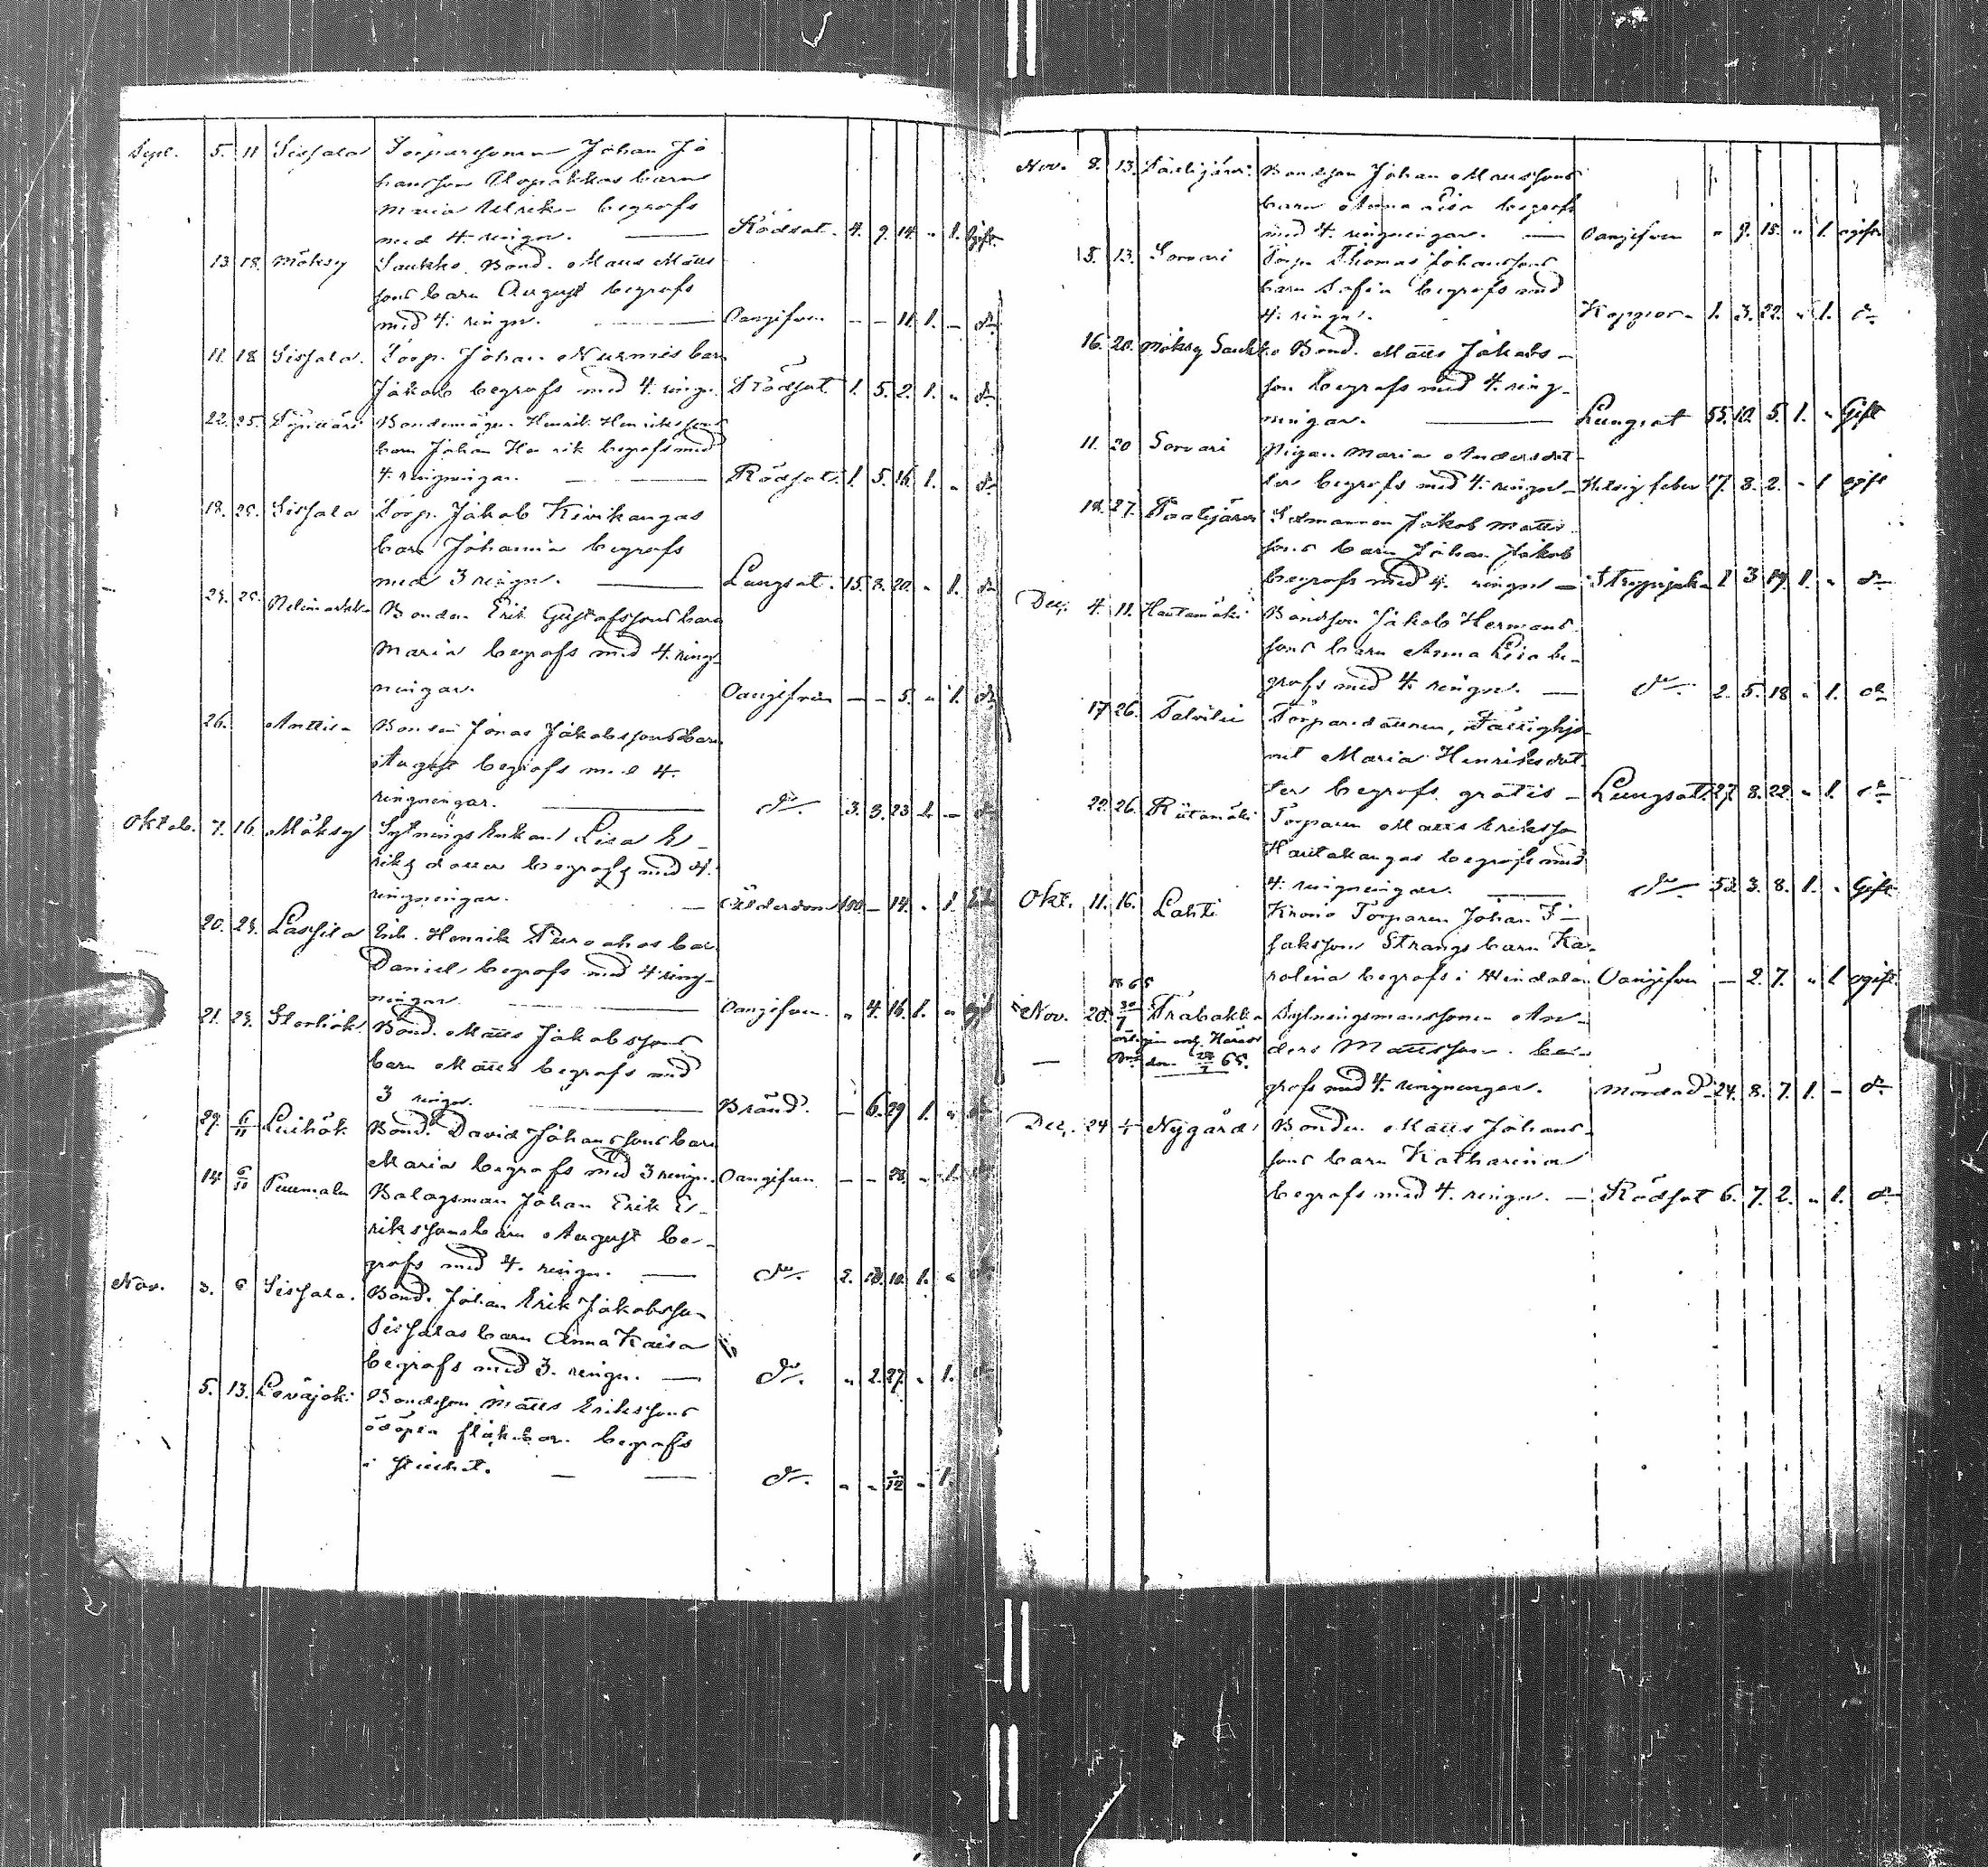 Sept. 5. 11 Sissala Torparesonen Johan Jo
hansson barn
Maria Ulrika begrafs
med 4. ringn. Rödsot. 4. 9. 14. " 1. ogift
13 18. Möksy Saukko Bond. Matts Matts
sons barn August begrafs
med 4. ringn. Oangifven — — 11. 1. — do
11. 18 Sissala. Torp. Johan Nurmis barn
Jakob begrafs med 4. ringn. Rödsot 1. 5. 2. 1. " do
22. 25. Bondemågen Henrik Henrikssons
barn Johan Henrik begrafs med
4. ringningar. Rödsot. 1. 5. 16. 1. " do
18. 25. Sissala Torp. Jakob Kivikangas
barn Johanna begrafs
med 3 ringn. Lungsot. 15. 8. 20. " 1. do
Bonden Erik Gustafssons barn
Maria begrafs med 4. ring-
ningar. Oangifven — — 5. " 1. do
26. Anttila Jonas Jakobssons barn
August begrafs med 4.
ringningar. do. 3. 3. 23 1. — do
Oktob. 7. 16. Möksy Sytningsenkan Lisa E-
riksdotter begrafs med 4.
ringningar. Ålderdom 100 — 14. " 1.
20. 23. Lassila Inh. Henrik barn
Daniel begrafs med 4 ring-
ningar Oangifven. " 4. 16. 1. "
21. 23. Bond. Matts Jakobssons
barn Matts begrafs med
3 ringn. Bränd. — 6. 29 1. "
29. 6/11 Bond. David Johanssons barn
Maria begrafs med 3 ringn. Oangifven — — 1.
14. Bolagsman Johan Erik E-
rikssons barn August be-
grafs med 4. ringn. do. 2. 10. 10. 1. "
Nov. 3. 6 Sissala. Bond. Johan Erik Jakobsson
Sissalas barn Anna Kaisa
begrafs med 3. ringn. do. " 2. 27. " 1.
5. 13. Leväjoki Bondeson Matts Erikssons
odöpta flickbarn begrafs
i do. " " " 1.
Nov. 8. 13. Bondeson Johan Mattssons
barn Anna Lisa begrafs
med 4. ringningar. Oangifven " 9. 15. " 1. ogift
5. 13. Sorvari Torp. Thomas Johanssons
barn Sofia begrafs med
4. ringn. Koppor 1. 3. 22. " 1. do
16. 20. Möksy Saukko Bond. Matts Jakobs-
son begrafs med 4. ring-
ningar. Lungsot 55. 10. 5. 1. " Gift
11. 20 Sorvari Pigan Maria Andersdot-
ter begrafs med 4. ringn. feber 17. 8. 2. " 1 ogift
18. 27. Jakob Matts
sons barn Johan Jakob
begrafs med 4. ringn. Strypsjuka 1 3 19. 1. " do
Dec. 4. 11. Hautamäki Bondson Jakob Hermans
sons barn Anna Lisa be-
grafs med 4. ringn. do. 2. 5. 18 " 1. do
17 26. Talvitie Torparedottren, Fattighjo-
net Maria Henriksdot
ter begrafs gratis Lungsot. 27. 8. 22. " 1. do
22. 26. Riitamäki Torparen Matts Eriksson
Hautakangas begrafs med
4. ringningar. do 52. 3. 8. 1. " Gift
Okt. 11. 16. Lahti Krono Torparen Johan I-
saksson Strangs barn Ka-
rolina begrafs i Windala. Oangifven — 2. 7. " 1 ogift.
1865
Nov. 20. 30/7 Träbakka Sytningsmanssonen An-
ders Mattsson be-
grafs med 4. ringningar. Mördad 24. 8. 7. 1. — do
Dec. 24 Nygård Bonden Matts Johans-
sons barn Katharina
begrafs med 4. ringn. Rödsot 6. 7. 2. " 1. do